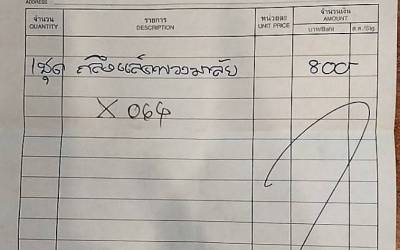 ADDRESS
จำนวน รายการ หน่วยละ จำนวนเงิน
QUANTITY DESCRIPTION UNIT PRICE AMOUNT
บาท/Baht ส.ต./Stg.
1 ชุด สลิงแล็คพวงมาลัย 800-
X 064